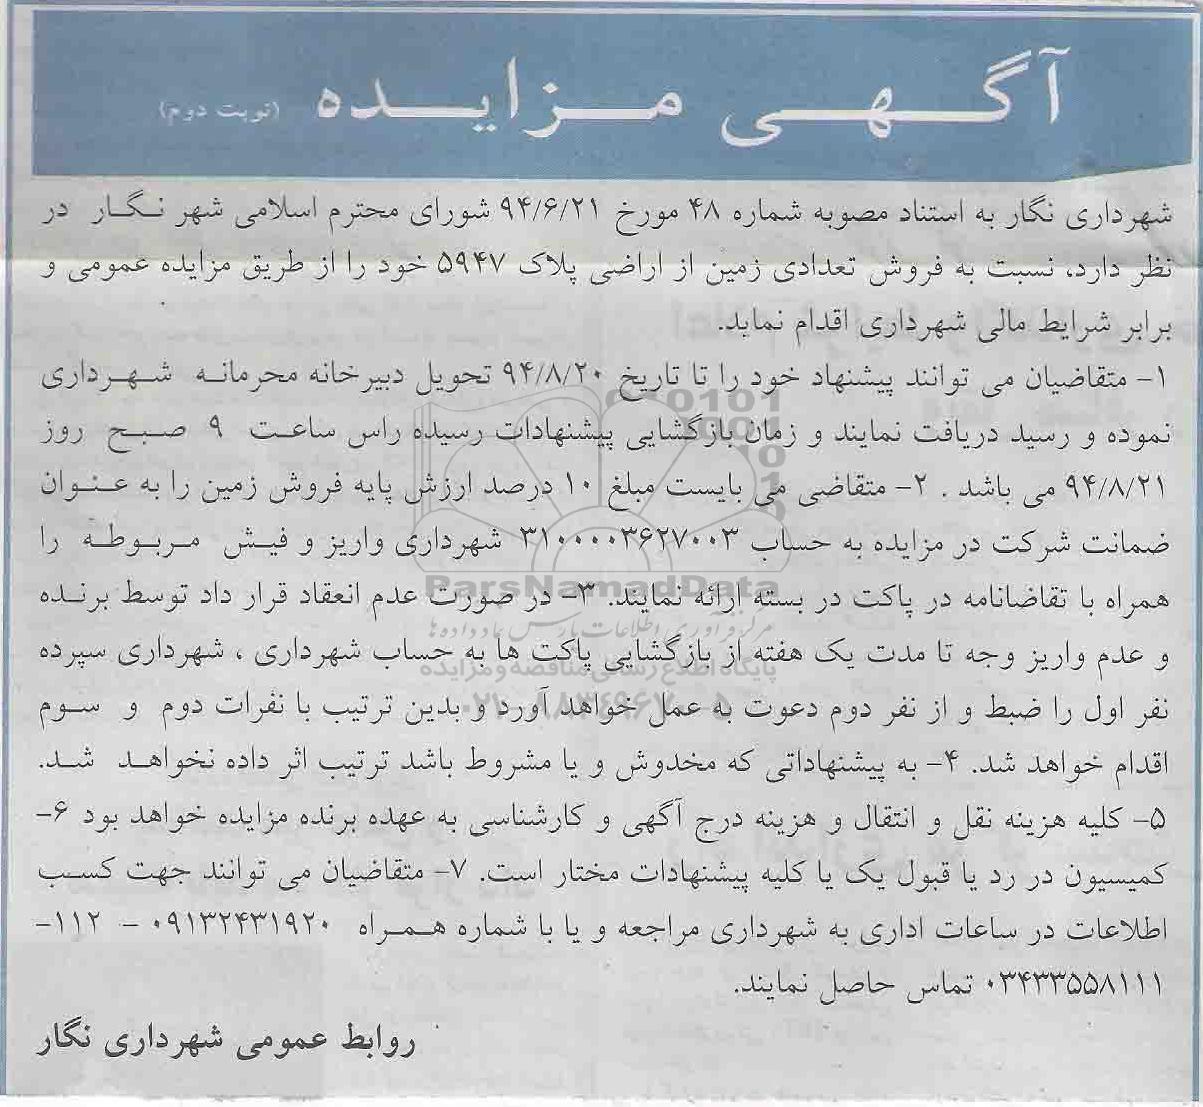 آگهی مزایده (نوبت دوم)
شهرداری نگار به استناد مصوبه شماره ۴۸ مورخ ۹۴/۶/۲۱ شورای محترم اسلامی شهر نگار در
نظر دارد، نسبت به فروش تعدادی زمین از اراضی پلاک ۵۹۴۷ خود را از طریق مزایده عمومی و
برابر شرایط مالی شهرداری اقدام نماید.
۱- متقاضیان می توانند پیشنهاد خود را تا تاریخ ۹۴/۸/۲۰ تحویل دبیرخانه محرمانه شهرداری
نموده و رسید دریافت نمایند و زمان بازگشایی پیشنهادات رسیده راس ساعت ۹ صبح روز
۹۴/۸/۲۱ می باشد . ۲- متقاضی می بایست مبلغ ۱۰ درصد ارزش پایه فروش زمین را به عنوان
ضمانت شرکت در مزایده به حساب ۳۱۰۰۰۰۳۶۲۷۰۰۳ شهرداری واریز و فیش مربوطه را
ParsNamadData
همراه با تقاضانامه در پاکت در بسته ارائه نمایند. ۳- در صورت عدم انعقاد قرار داد توسط برنده
مرکز فراوری اطلاعات پارس نماد داده ها
و عدم واریز وجه تا مدت یک هفته از بازگشایی پاکت ها به حساب شهرداری ، شهرداری سپرده
پایگاه اطلاع رسانی مناقصه و مزایده
نفر اول را ضبط و از نفر دوم دعوت به عمل خواهد آورد و بدین ترتیب با نفرات دوم و سوم
اقدام خواهد شد. ۴- به پیشنهاداتی که مخدوش و یا مشروط باشد ترتیب اثر داده نخواهد شد.
۵- کلیه هزینه نقل و انتقال و هزینه درج آگهی و کارشناسی به عهده برنده مزایده خواهد بود ۶-
کمیسیون در رد یا قبول یک یا کلیه پیشنهادات مختار است. ۷- متقاضیان می توانند جهت کسب
اطلاعات در ساعات اداری به شهرداری مراجعه و یا با شماره همراه ۰۹۱۳۲۴۳۱۹۲۰ - ۱۱۲-
۰۳۴۳۳۵۵۸۱۱۱ تماس حاصل نمایند.
روابط عمومی شهرداری نگار